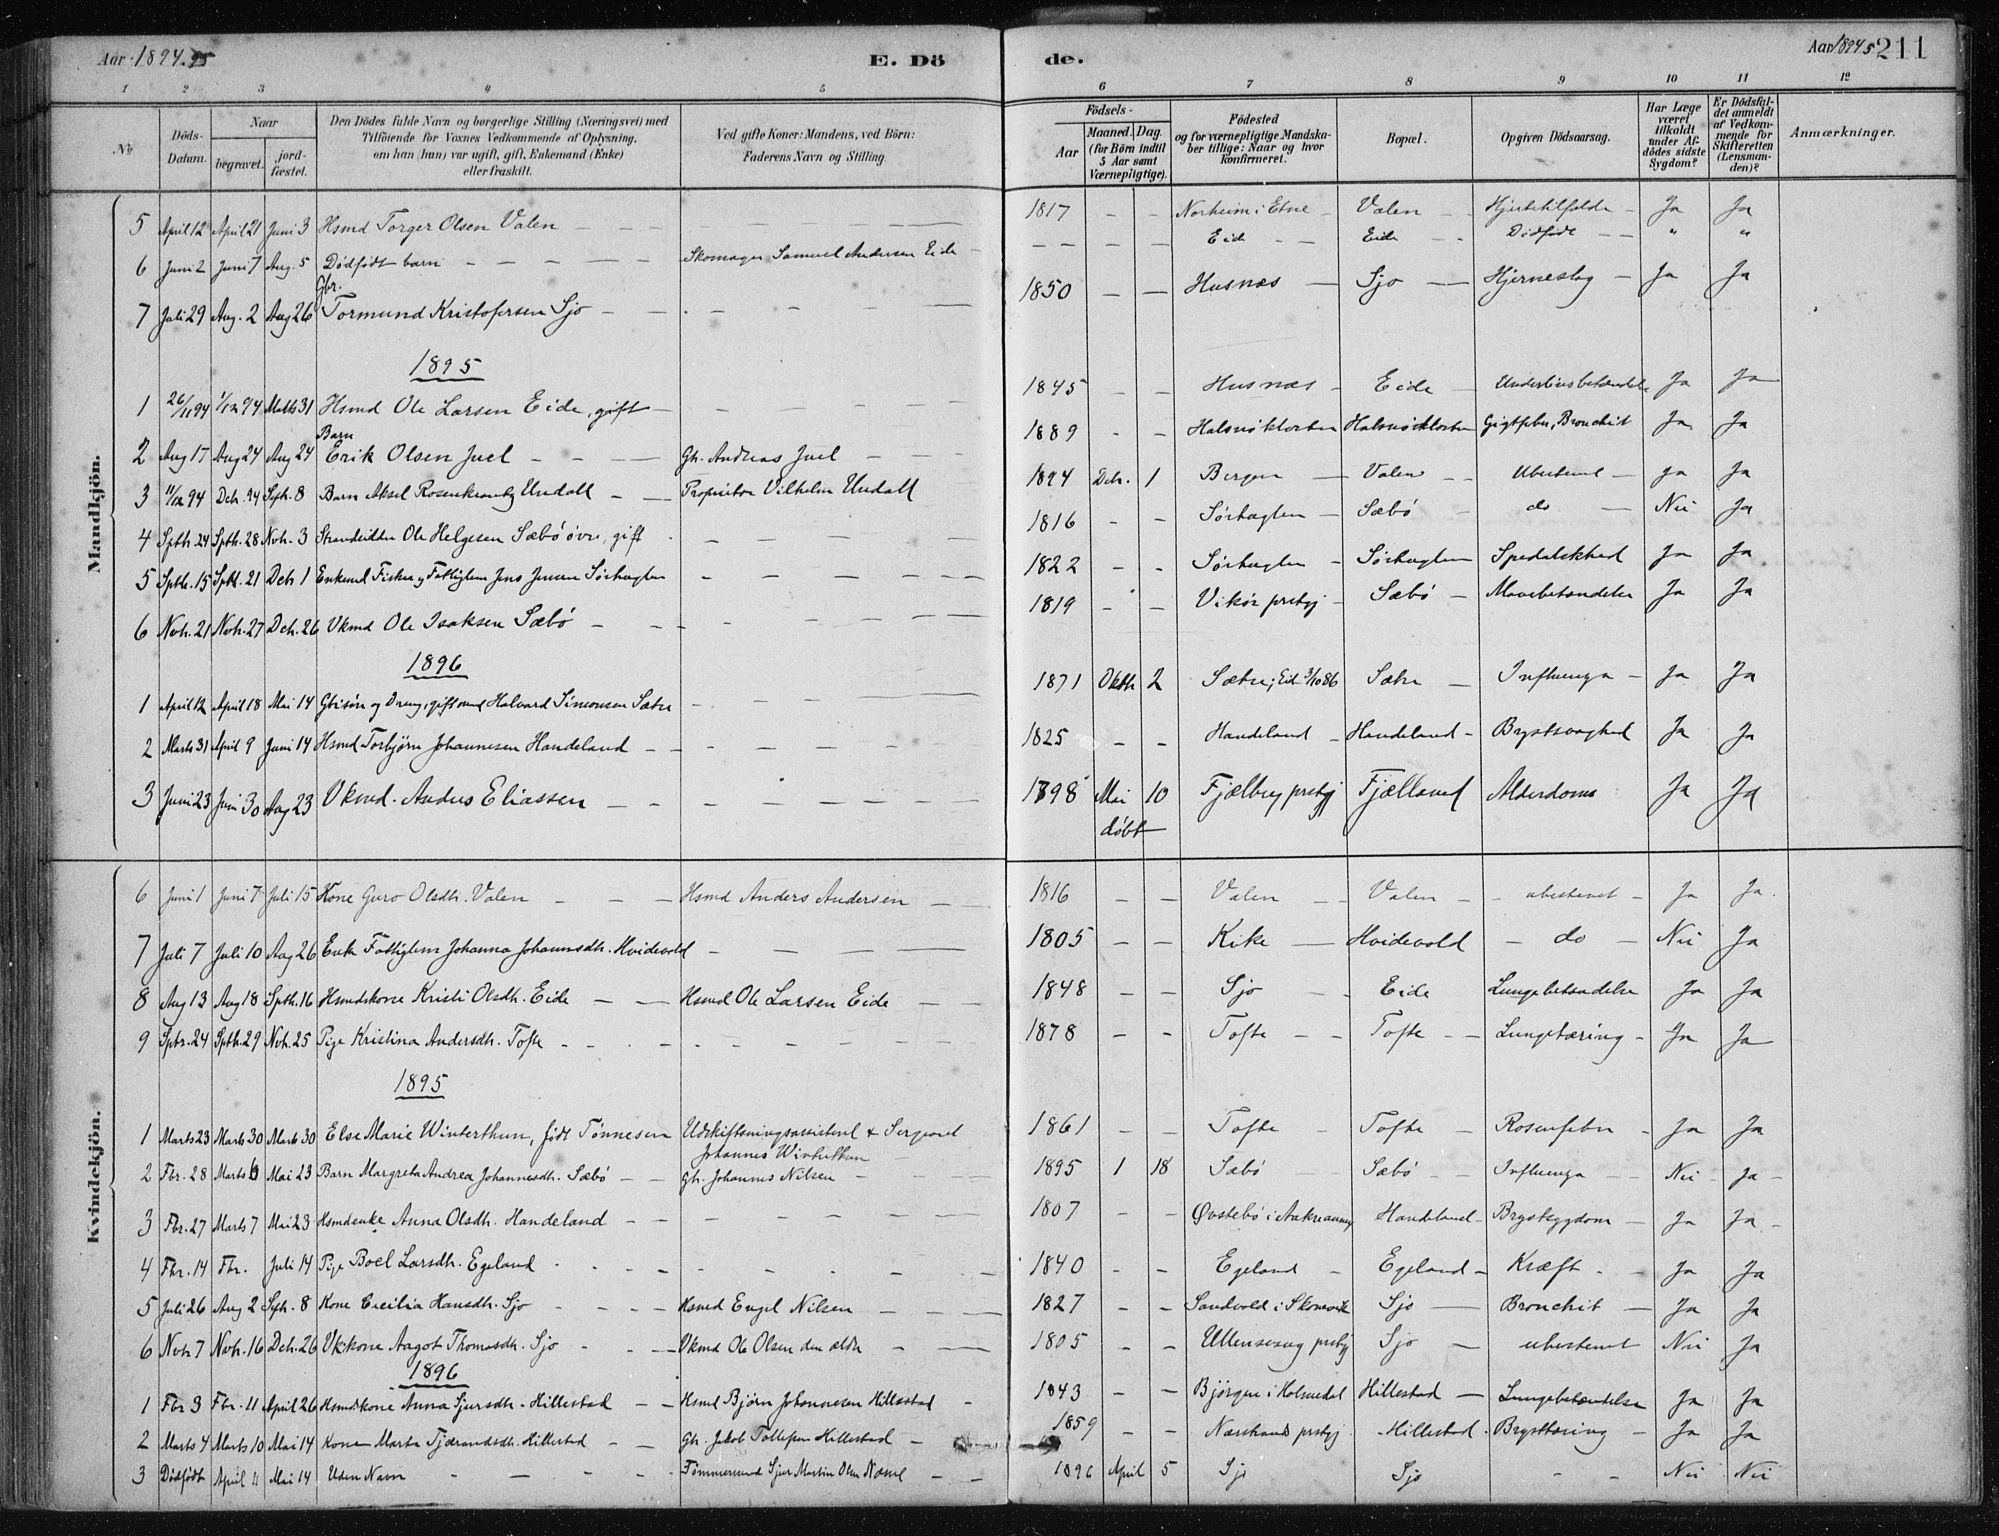 Aar 1894.95
E. Döde.
Aar 1894 5 211
1 2 3 4 5 6 7 8 9 10 11 12
No
Döds-Datum.
Naar
begravet.
jord-fæstet.
Den Dödes fulde Navn og borgerlige Stilling (Næringsvei) med
Tilföiende for Voxnes Vedkommende af Oplysning,
om han (hun) var ugift, gift, Enkemand (Enke)
eller fraskilt.
Ved gifte Koner: Mandens, ved Börn:
Faderens Navn og Stilling.
Födsels-
Aar
Maaned. Dag.
(for Börn indtil
5 Aar samt
Værnepligtige).
Födested
og for værnepligtige Mandska-
ber tillige: Naar og hvor
konfirmeret.
Bopæl.
Opgiven Dödsaarsag.
Har Læge
været
tilkaldt
under Af-
dödes sidste
Sygdom?
Er Dödsfal-
det anmeldt
af Vedkom-
mende for
Skifteretten
(Lensman-
den)?
Anmærkninger.
Mandkjön.
5 April 12 April 21 Juni 3 Hsmd Torger Olsen Valen — — 1817 - - Norheim i Etne - Valen - Hjertetilfælde - Ja Ja
6 Juni 2 Juni 7 Aug. 5 Dødfødt barn — — Skomager Samuel Andersen Eide - — — — Eide - Eide - Dødfødt — " "
7 Juli 29 Aug. 2 Aug 26 Gbr. Tormund Kristofersen Sjo — — 1850 - - Husnæs - Sjo - Hjerneslag - Ja Ja
1895
1 26/11 94 1/12 94 Marts 31 Hsmd Ole Larsen Eide, gift — — 1845 - - Husnæs - Eide - Underlivsbetændelse Ja Ja
2 Aug 17 Aug 24 Aug 24 Barn Erik Olsen Juel — Gh. Andreas Juel — 1889 - - Halsnøkloster Halsnøkloster Gigtfeber, Bronchit Ja Ja
3 11/12 94 Dcb. 94 Spth. 8 Barn Aksel Rosenkrantz Undall — Proprietær Vilhelm Undall 1894 Dcb. 1 Bergen - Valen - Ubestemt - Ja Ja
4 Spth. 24 Spth. 28 Novh. 3 Strandsidder Ole Helgesen Sæbø øvre, gift — 1816 - - Sørhuglen - Sæbø - do - Nei Ja
5 Spth. 15 Spth. 21 Dcb 1 Enkemd Fisker og Fattiglem Jens Jensen Sørhuglen — 1822 - - Sørhuglen - Sørhuglen - Spedalskhed Ja Ja
6 Novh. 21 Novh. 27 Dcb. 26 Vkmd Ole Isaksen Sæbø — — 1819 - - Vikør prstgj - Sæbø - Mavebetændelse Ja Ja
1896
1 April 12 April 18 Mai 14 Gbrsøn og Dreng, gift mand Halvard Simonsen Sætre — 1871 Oktb 2 Sætre; Eid 3/10 86 Sætre - Influenza - Ja Ja
2 Marts 31 April 9 Juni 14 Hsmd Torbjørn Johannesen Handeland — — 1825 - - Handeland - Handeland - Brystsvaghed Ja Ja
3 Juni 23 Juni 30 Aug 23 Vkmd. Anders Eliassen — — 1798 Mai døbt 10 Fjælberg prstgj Fjælland Alderdoms Ja Ja
Kvindekjön.
6 Juni 1 Juni 7 Juli 15 Kone Guro Olsdh. Valen — Hsmd Anders Andersen — 1816 - - Valen - Valen - ubestemt - Ja Ja.
7 Juli 7 Juli 10 Aug 26 Enke Fattiglem Johanna Johannsdh. Hvidevold — 1805 - - Kike - Hvidevold - do - Nei Ja
8 Aug 13 Aug 18 Spth. 16 Hsmdskone Kristi Olsdh. Eide — Hsmd Ole Larsen Eide — 1848 - - Sjo - Eide Lungebetændelse Ja Ja
9 Sptr. 24 Spth. 29 Novh. 25 Pige Kristina Andersdh. Tofte — — 1878 - - Tofte - Tofte - Lungetæring - Ja Ja
1895
1 Marts 23 Marts 30 Marts 30 Else Marie Winterthun, født Tønnesen Udskiftningsassistent & Sergeant Johannes Winterthun 1861 - - Tofte - Tofte - Rosenfeber - Ja Ja
2 Fbr. 28 Marts 6 Mai 23 Barn Margreta Andrea Johannesdh. Sæbø — Gh. Johannes Nilsen — 1895 1 18 Sæbø - Sæbø - Influenza - Nei - Ja -
3 Fbr. 27 Marts 7 Mai 23 Hsmdenke Anna Olsdh. Handeland — — 1807 - - Øvstebø i Aakre annx Handeland - Brystsygdom - Ja Ja -
4 Fbr. 14 Fbr. Juli 14 Pige Boel Larsdh. Egeland — — 1840 - - Egeland - Egeland - Kræft - Ja Ja
5 Juli 26 Aug 2 Spth. 8 Kone Cecilia Hansdh. Sjo — Hsmd Engel Nilsen — 1827 - - Sandvold i Skonevik Sjo - Bronchit - Ja Ja
6 Novh 7 Novh. 16 Dcb. 26 Vkkone Aagot Thomasdh. Sjo — Vkmd Ole Olsen den ældre — 1805 - - Ullensvang prstgj Sjo - ubestemt Nei Ja
1896
1 Fbr 3 Fbr. 11 April 26 Hsmdskone Anna Sjursdh. Hillestad — Hsmd Bjørn Johannesen Hillestad - 1843 - - Bjørgen i Holmedal Hillestad - Lungebetændelse Ja Ja
2 Marts 4 Marts 10 Mai 14 Kone Marta Tjærandsdh. Hillestad — Gh. Jakob Tollefsen Hillestad - 1859 - - Nærstrand prstgj. - Hillestad - Brysttæring - Ja Ja
3 Dødfødt April 11 Mai 14 Uden Navn — — Tømmermand Sjur Martin Olsen Næme — 1896 April 5 Sjo Sjo - - Nei Nei